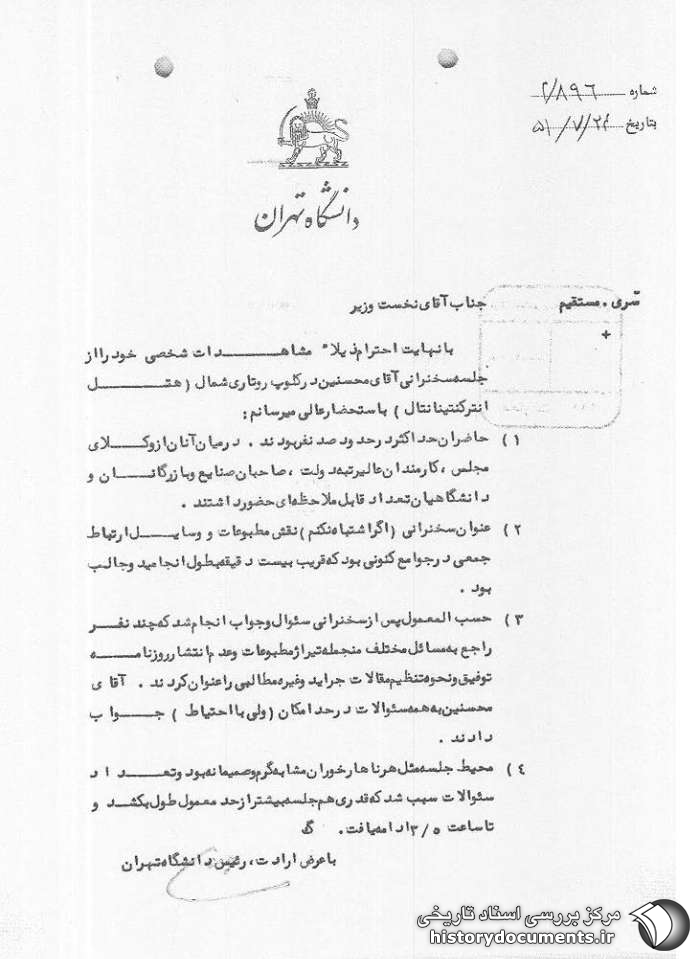 شماره ۲/۸۹۶
بتاریخ ۵۱/۷/۲۴
دانشگاه تهران
سّری . مستقیم
جناب آقای نخست وزیر
بانهایت احترام ذیلاً مشاهدات شخصی خود را از
جلسه سخنرانی آقای محسنین در کلوپ روتاری شمال ( هتل
انترکنتیناتال ) باستحضار عالی میرسانم :
۱ ) حاضران حداکثر در حدود صد نفر بودند . در میان آنان از وکلای
مجلس ، کارمندان عالیرتبه دولت ، صاحبان صنایع و بازرگانان و
دانشگاهیان تعداد قابل ملاحظه‌ای حضور داشتند .
۲ ) عنوان سخنرانی ( اگر اشتباه نکنم ) نقش مطبوعات و وسایل ارتباط
جمعی در جوامع کنونی بود که قریب بیست دقیقه بطول انجامید و جالب
بود .
۳ ) حسب المعمول پس از سخنرانی سئوال و جواب انجام شد که چند نفر
راجع به مسائل مختلف منجمله تیراژ مطبوعات و عدم انتشار روزنامه
توفیق و نحوه تنظیم مقالات جراید و غیره مطالبی را عنوان کردند . آقای
محسنین به همه سئوالات در حد امکان ( ولی با احتیاط ) جواب
دادند .
۴ ) محیط جلسه مثل هر ناهارخوران مشابه گرم و صمیمانه بود و تعداد
سئوالات سبب شد که قدری هم جلسه بیشتر از حد معمول طول بکشد و
تا ساعت ۳/۵ ادامه یافت . گ
با عرض ارادت ، رئیس دانشگاه تهران
مرکز بررسی اسناد تاریخی
historydocuments.ir